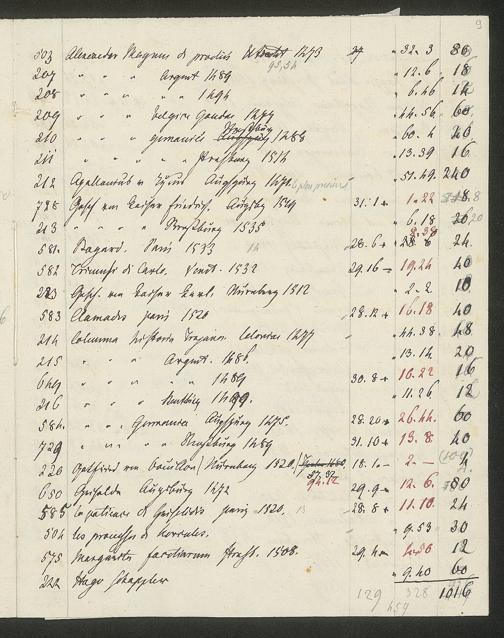 9
503 Alexander Magnus de proeliis 1473 " 32. 3 86
207 " " " Argent 1489 " 12. 6 18
208 " " " " 1494 " 6. 46 12
209 " " " belgice Goudae 1477 " 44. 56 60
210 " " " germanice Strasburg 1488 " 60. 4 20
211 " " " " Strasburg 1514 " 13. 39 16
212 Apollonius v. Tyrus Augsburg 1471. " 51. 49 240
788 Gesch von Kaiser Friedrich. Augsburg 1519 31. 1 1. 22 8
213 " " " " Strasburg 1535 " 6. 18 20
581. Bayard. Paris 1533 28. 6 24.
582 Triumpf di Carlo. Venet. 1532 29. 16 19. 24 40
283 Gesch. von Kaiser Karl. Nürnberg 1512 " 2. 2 10
583 Clamades paris 1520 28. 12 16. 18 40
214 Columna historia Trojana. Coloniae 1477 " 44. 38 48
215 " " " Argent. 1486. " 13. 14 20
649 " " " " 1489 30. 8 10. 22 16
216 " " " 1499. " 11. 26 12
584. " " Germanice Augsburg 1475. 28. 20 26. 44. 60
729 " " " " Strasburg 1489 31. 10 13. 8 40
220 Gotfried von Bouillon Nürnberg 1520 18. 1 2. — 4
650 Griseldis Augsburg 1472 29. 9 12. 6. 80
585 La patience de Griselidis paris 1520. 28. 8 11. 10. 24
504 les prouesses de hercules. " 9. 53 30
575 Margarita facetiarum Strasb. 1508. 29. 4 12
222 Hugo Schappler " 9. 40 60
129 328 1016
459